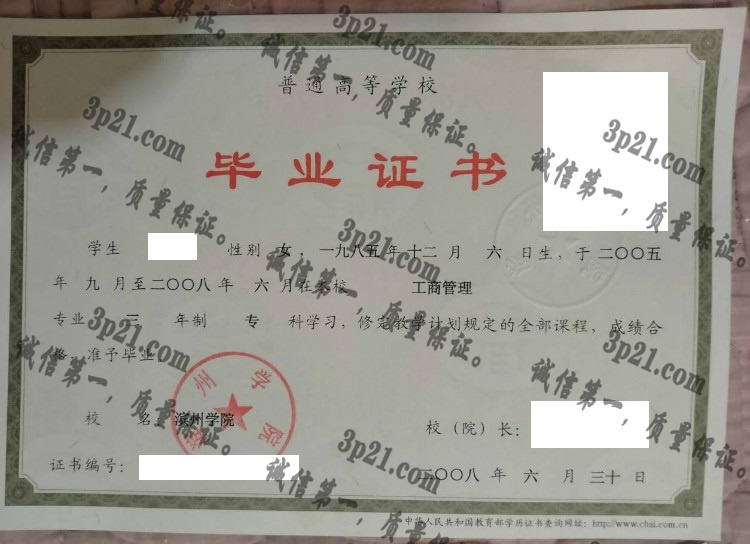 普通高等学校
毕业证书
学生 性别 女，一九八五年十二月 六 日生，于二〇〇五
年 九 月至二〇〇八年 六 月在本校 工商管理
专业 三 年制 专 科学习，修完教学计划规定的全部课程，成绩合
格，准予毕业。
校 名：滨州学院
校（院）长：
证书编号：
二〇〇八 年 六 月 三十 日
中华人民共和国教育部学历证书查询网址：http://www.chsi.com.cn
滨州学院
3p21.com
诚信第一，质量保证。
3p21.com
诚信第一，质量保证。
3p21.com
诚信第一，质量保证。
3p21.com
诚信第一，质量保证。
3p21.com
诚信第一，质量保证。
3p21.com
诚信第一，质量保证。
3p21.com
诚信第一，质量保证。